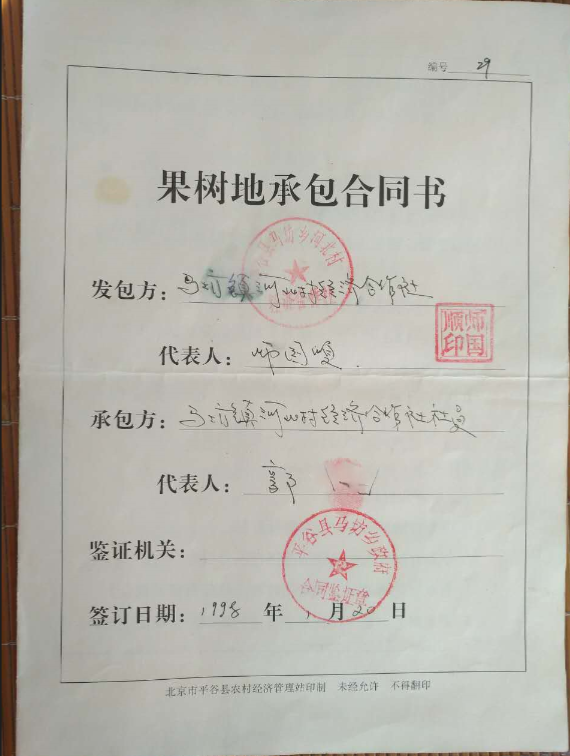 编号 29
果树地承包合同书
发包方：马坊镇河北村经济合作社
代表人：师国顺
师国顺印
承包方：马坊镇河北村经济合作社社员
代表人：郭
鉴证机关：
平谷县马坊乡政府
签订日期：1998年1月20日
北京市平谷县农村经济管理站印制 未经允许 不得翻印